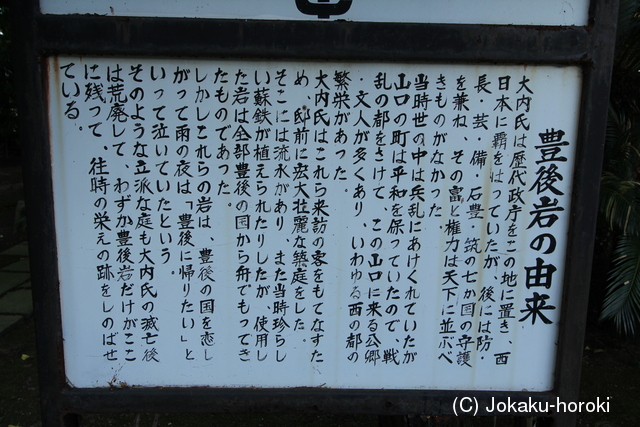 豊後岩の由来
大内氏は歴代政庁をこの地に置き、西
日本に覇をはっていたが、後には防・
長・芸・備・石・豊・筑の七か国の守護
を兼ね、その富と権力は天下に並ぶべ
きものがなかった
当時世の中は兵乱にあけくれていたが
山口の町は平和を保っていたので、戦
乱の都をさけて、この山口に来る公卿
・文人が多くあり、いわゆる西の都の
繁栄があった。
大内氏はこれら来訪の客をもてなすた
め、邸前に宏大壮麗な築庭をした。
そこには流水があり、また当時珍らし
い蘇鉄が植えられたりしたが、使用し
た岩は全部豊後の国から舟でもってき
たものであった。
しかしこれらの岩は、豊後の国を恋し
がって雨の夜は「豊後に帰りたい」と
いって泣いていたという。
そのような立派な庭も大内氏の滅亡後
は荒廃して、わずか豊後岩だけがここ
に残って、往時の栄えの跡をしのばせ
ている。
(C) Jokaku-horoki